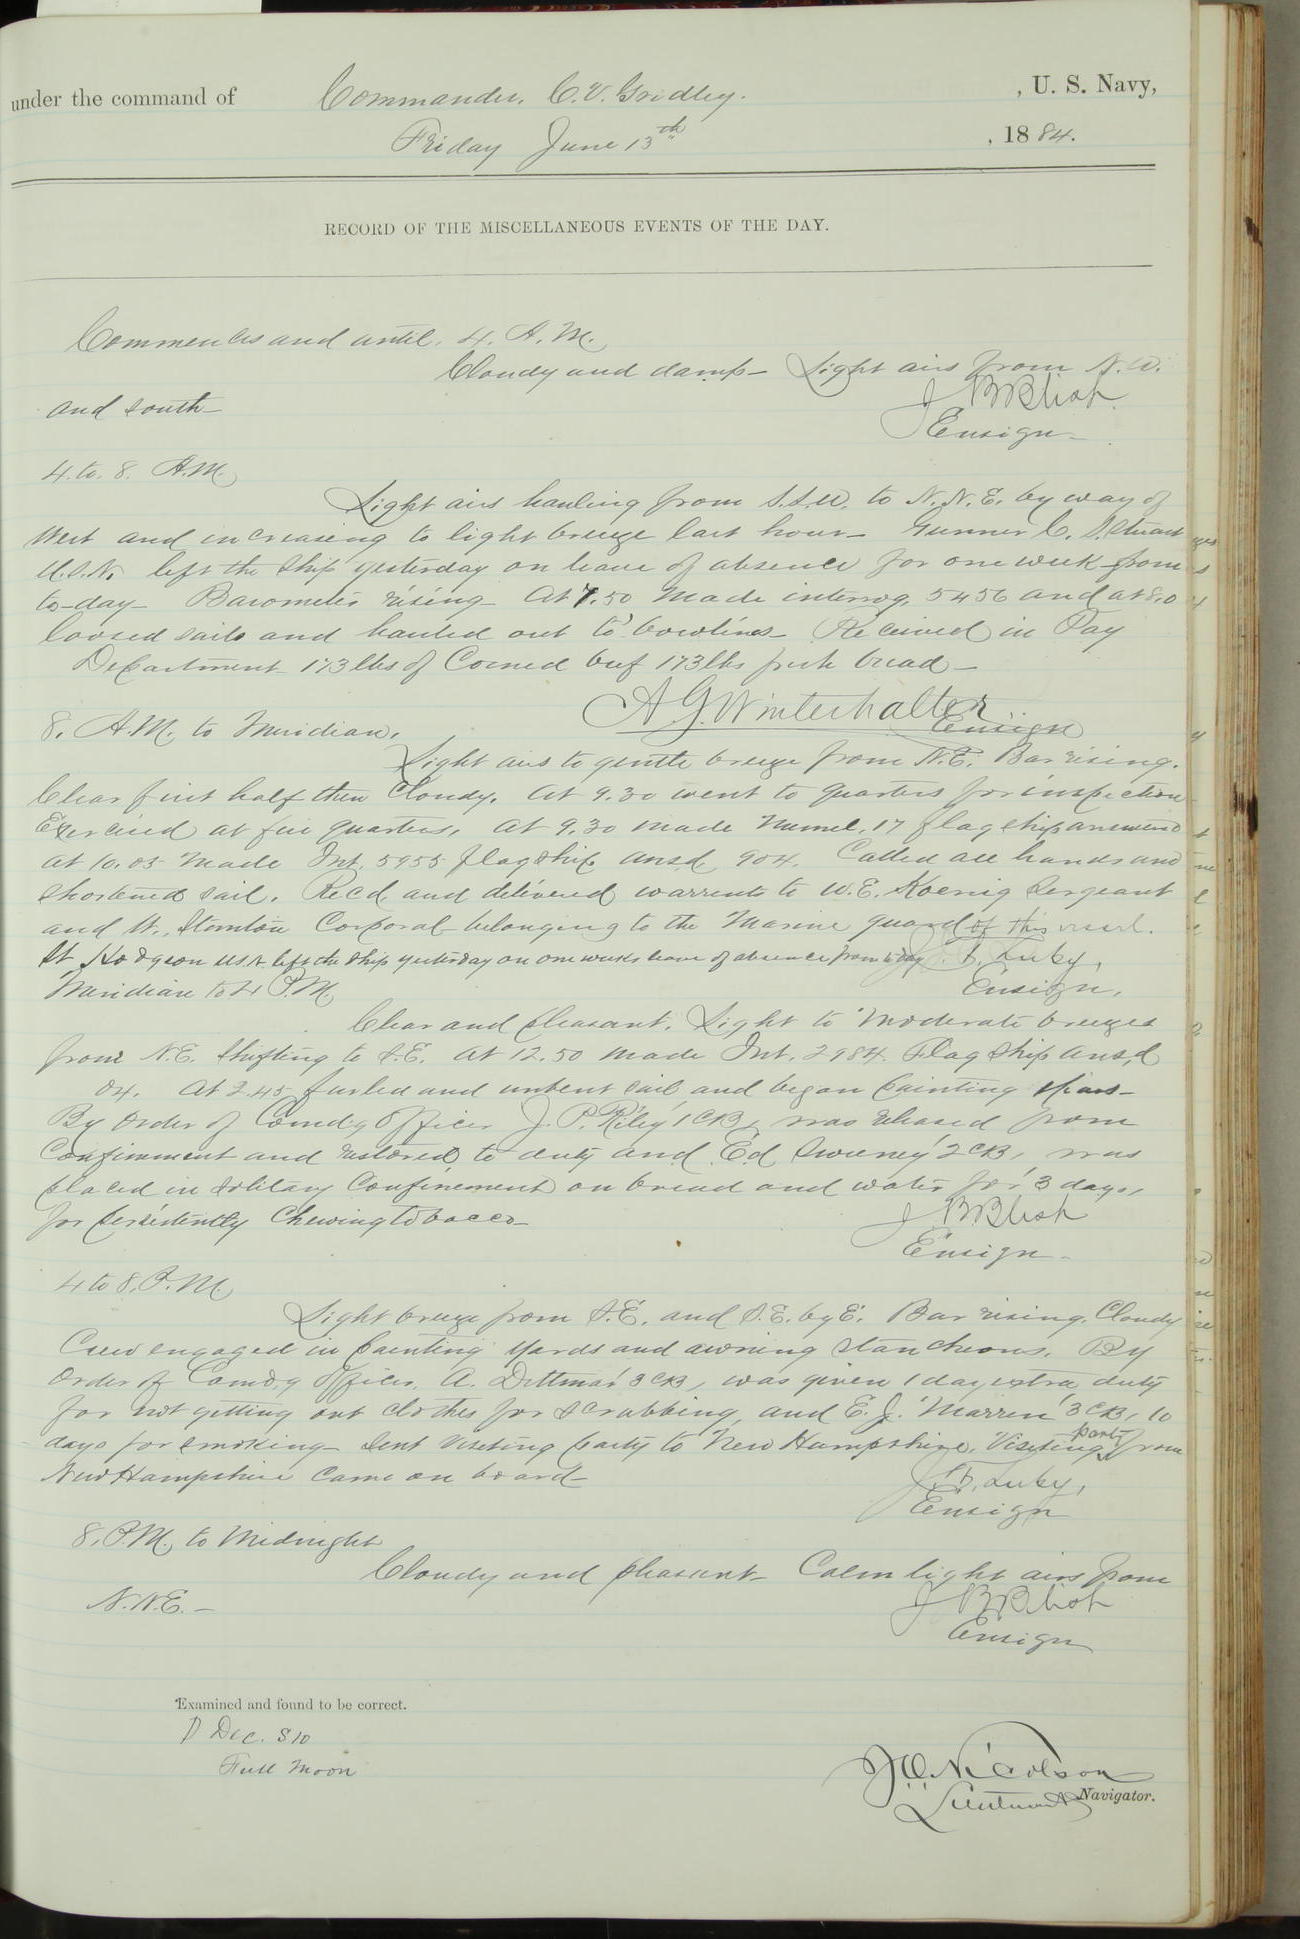 under the command of Commander. C.V. Gridley. , U. S. Navy,
Friday June 13th , 1884.
RECORD OF THE MISCELLANEOUS EVENTS OF THE DAY.
Commences and until. 4. A.M.
Cloudy and damp- Light airs from N.W.
and south-
J B Blish
Ensign-
4. to. 8. A.M.
Light airs hauling from S.S.W. to N.N.E. by way of
West and increasing to light breeze last hour- Gunner C. S. Stuart
U.S.N. left the ship yesterday on leave of absence for one week from
to-day- Barometer rising- At 7.50 made interrog. 5456 and at 8.0
loosed sails and hauled out to bowlines- Received in Pay
Department 173 lbs of Corned beef 173 lbs fresh bread-
A.G. Winterhalter
Ensign
8. A.M. to Meridian.
Light airs to gentle breeze from N.E. Bar rising.
Clear first half then Cloudy. At 9.30 went to quarters for inspection
Exercised at fire quarters. At 9.30 made Numel. 17 flagship answered
at 10.05 Made Int. 5955 flagship ansd, 904. Called all hands and
shortened sail. Recd and delivered warrants to W.E. Koenig Sergeant
and W. Stanton Corporal belonging to the Marine guard of this vessel.
Lt Hodgson USN left the ship yesterday on one weeks leave of absence from to day
J. F. Luby,
Ensign.
Meridian to 4 P.M.
Clear and pleasant. Light to moderate breezes
from N.E. shifting to S.E. At 12.50 made Int. 2984. Flagship ans,d
04. At 2.45 furled and unbent sail and began painting spars-
By order of Comdg Officer J. P. Riley 1CB, was released from
Confinement and restored to duty and Ed Sweeney 2CB, was
placed in solitary Confinement on bread and water for 3 days,
for persistently Chewing tobacco-
J B Blish
Ensign-
4 to 8. P.M.
Light breeze from S.E. and S.E. by E. Bar rising. Cloudy
Crew engaged in painting yards and awning stancheons. By
order of Comdg Officer, A. Dittmar 3CB, was given 1 day extra duty
for not getting out clothes for scrubbing, and E.J. Marren 3CB, 10
days for smoking- Sent visiting party to New Hampshire. Visiting party from
New Hampshire came on board-
J. F. Luby,
Ensign
8. P.M. to Midnight
Cloudy and pleasant- Calm light airs from
N.N.E.-
J B Blish
Ensign
Examined and found to be correct.
D Dec. S10
Full Moon
J.O. Nicolson
Lieutenant Navigator.